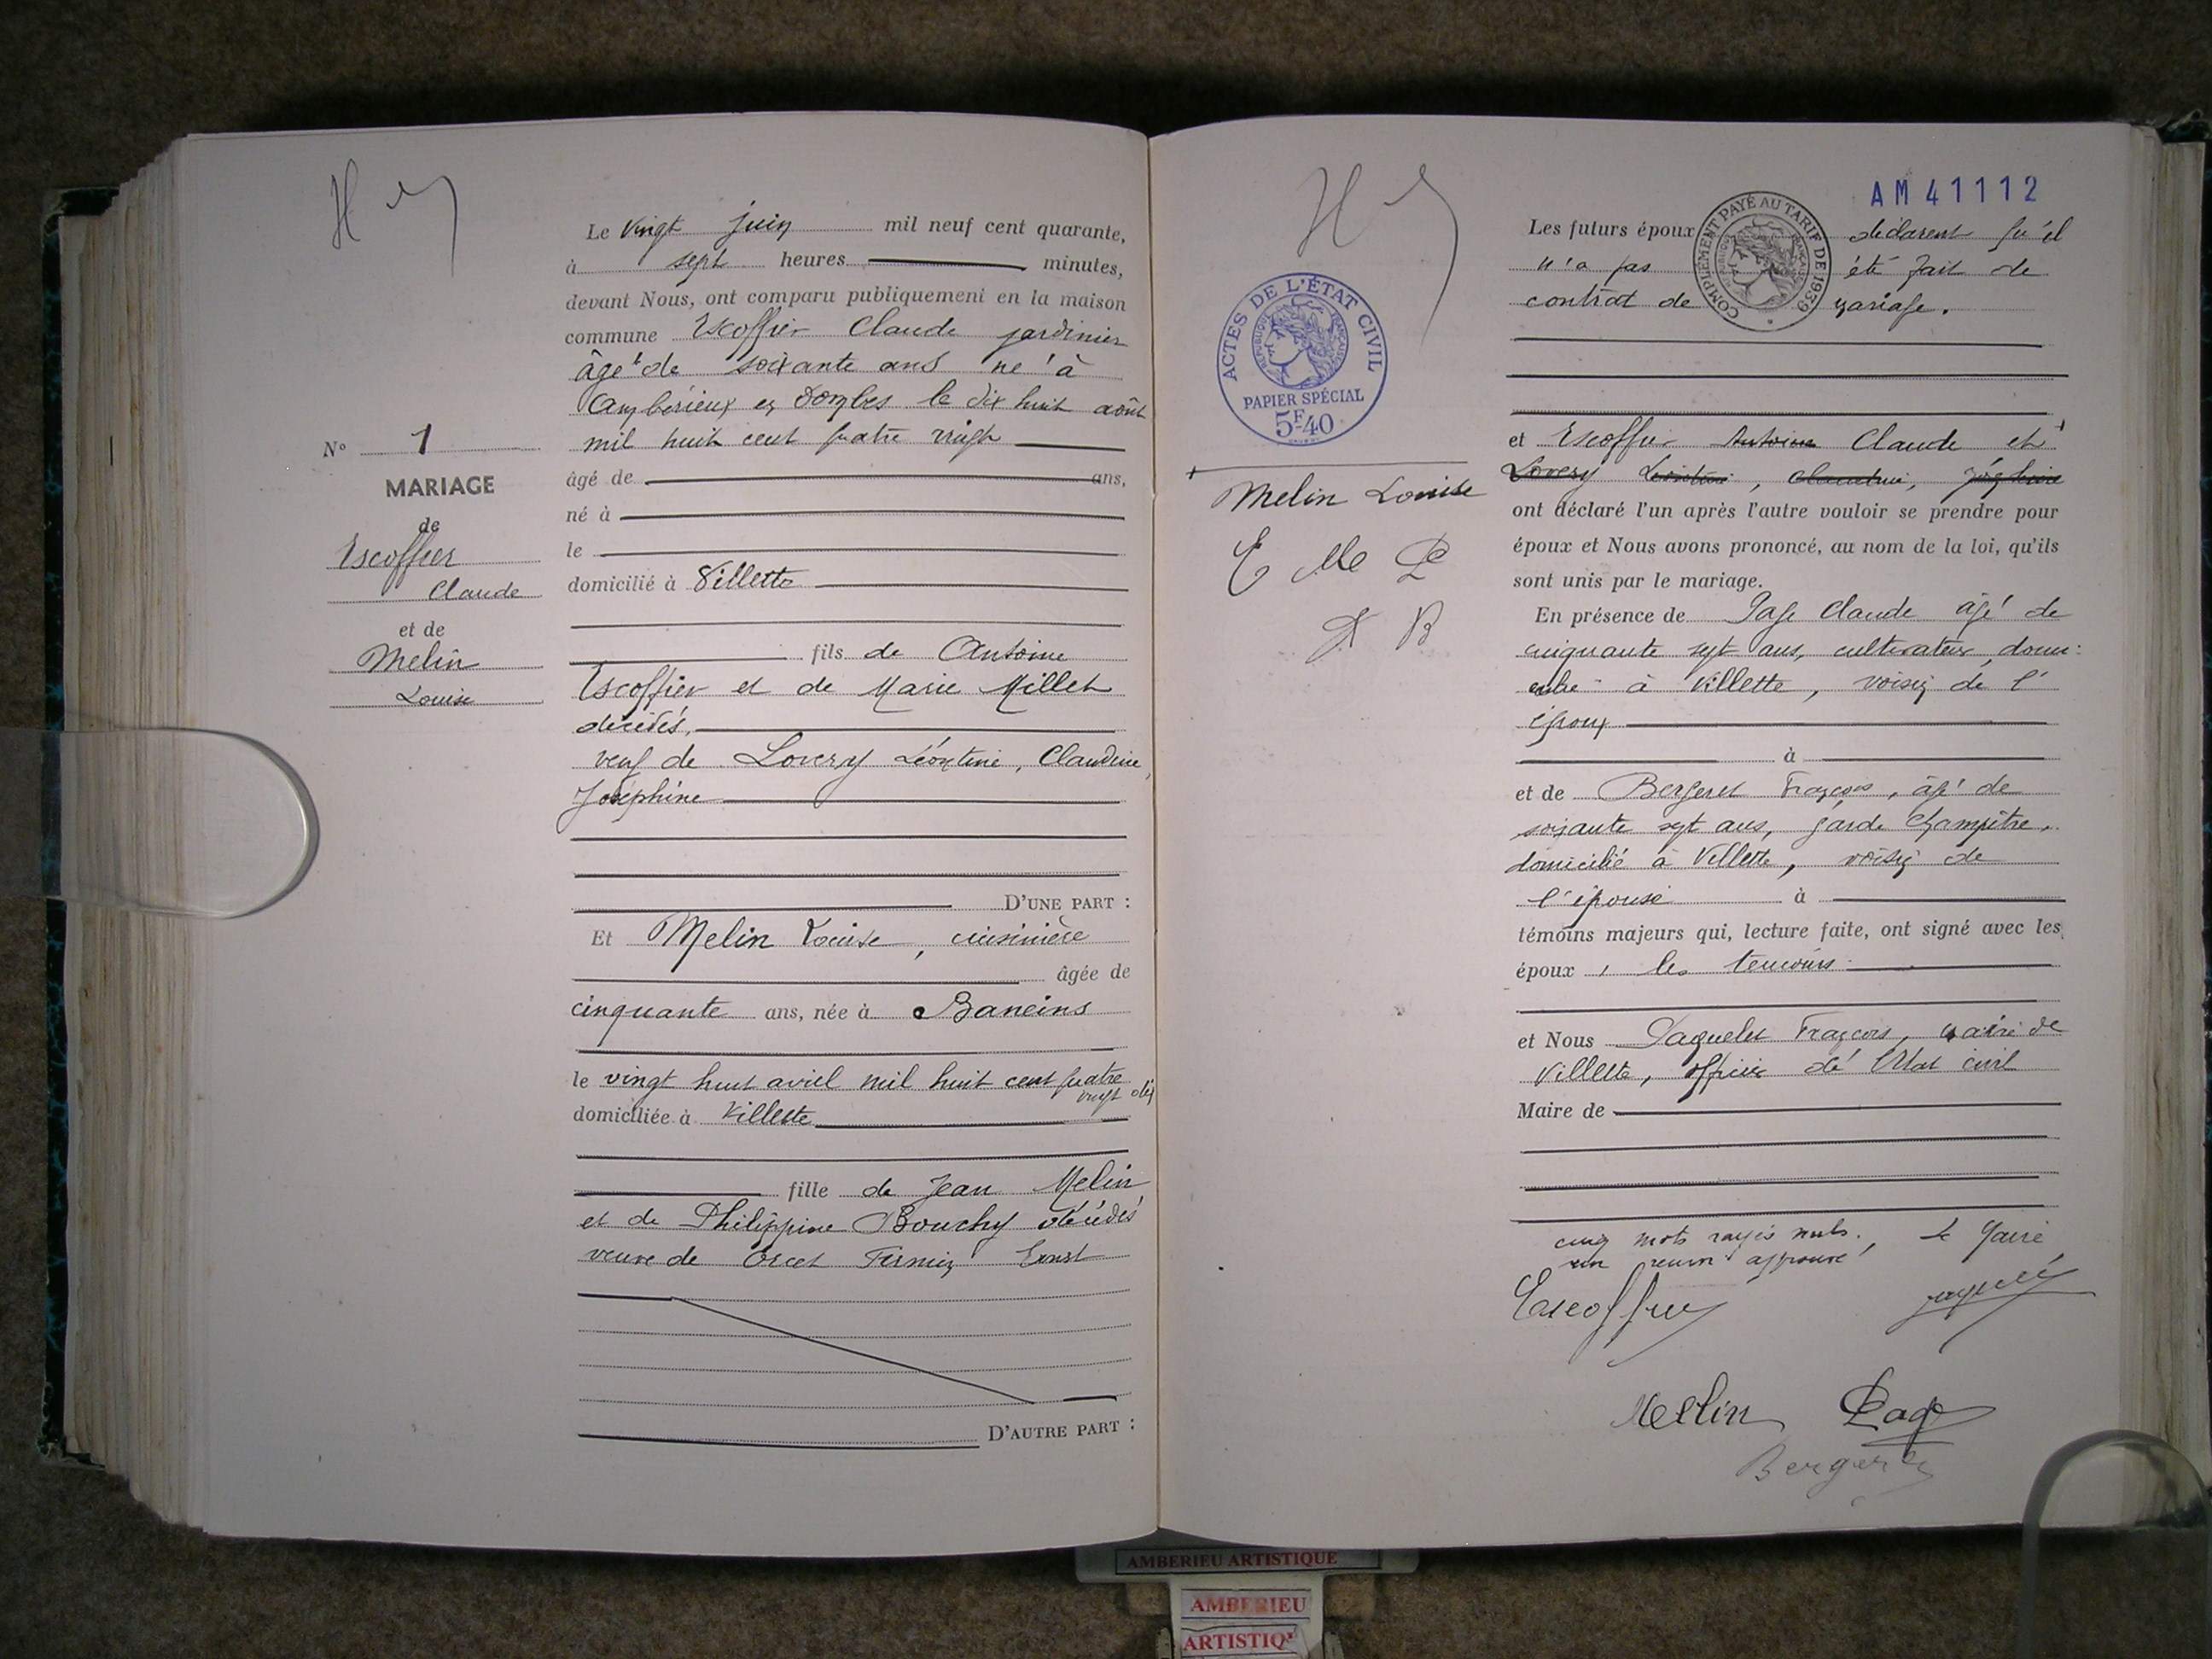 Le vingt juin mil neuf cent quarante,
à sept heures minutes,
devant Nous, ont comparu publiquement en la maison
commune Escoffier Claude jardinier
âgé de soixante ans né à
Ambérieux en Dombes le dix huit août
mil huit cent quatre vingt
N° 1
MARIAGE
de
Escoffier
Claude
et de
Melin
Louise
âgé de ans,
né à
le
domicilié à Villette
fils de Antoine
Escoffier et de Marie Millet
décédés,
veuf de Lovery Léontine, Claudine,
Joséphine
D'UNE PART :
Et Melin Louise, cuisinière
âgée de
cinquante ans, née à Baneins
le vingt huit avril mil huit cent quatre
vingt dix
domiciliée à Villette
fille de Jean Melin
et de Philippine Bouchy décédés
veuve de Ercet Firmin Ernest
D'AUTRE PART :
AM 41112
ACTES DE L'ÉTAT CIVIL
RÉPUBLIQUE FRANÇAISE
PAPIER SPÉCIAL
5F40
COMPLÉMENT PAYÉ AU TARIF DE 1939
RÉPUBLIQUE FRANÇAISE
Melin Louise
E Me P
B
Les futurs époux déclarent qu'il
n'a pas été fait de
contrat de mariage.
et Escoffier Antoine Claude et
Lovery Léontine, Claudine, Joséphine
ont déclaré l'un après l'autre vouloir se prendre pour
époux et Nous avons prononcé, au nom de la loi, qu'ils
sont unis par le mariage.
En présence de Page Claude âgé de
cinquante sept ans, cultivateur, domi-
cilié à Villette, voisin de l'
époux
à
et de Bergeret François, âgé de
soixante sept ans, garde champêtre,
domicilié à Villette, voisin de
l'épouse à
témoins majeurs qui, lecture faite, ont signé avec les
époux, les témoins
et Nous Paquelet François, maire de
Villette, officier de l'Etat civil
Maire de
cinq mots rayés nuls. Le Maire
un renvoi approuvé
Escoffier
Mellin Page
Bergeret
AMBERIEU ARTISTIQUE
AMBERIEU
ARTISTIQ